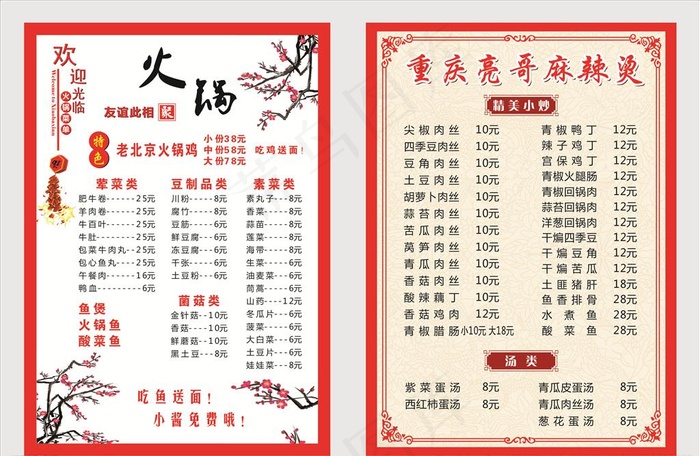 欢迎光临
Welcome to
火锅菜单
火锅
友谊此相聚
特色
老北京火锅鸡
小份38元
中份58元
大份78元
吃鸡送面！
荤菜类
肥牛卷-----25元
羊肉卷-----25元
牛百叶-----25元
牛肚-------25元
包菜牛肉丸--25元
包心鱼丸----15元
午餐肉-----16元
鸭血-------6元
鱼煲
火锅鱼
酸菜鱼
豆制品类
川粉----8元
腐竹----8元
豆筋----8元
鲜豆腐--6元
冻豆腐--6元
千张----6元
土豆粉--6元
菌菇类
金针菇--10元
香菇----10元
鲜蘑菇--10元
黑土豆---8元
素菜类
素丸子--8元
香菜----8元
蒜苗----8元
莲菜----8元
海带----8元
生菜----6元
油麦菜--6元
茼蒿----6元
山药---12元
冬瓜片--6元
菠菜----6元
大白菜--6元
土豆片--6元
娃娃菜--8元
吃鱼送面！
小酱免费哦！
重庆亮哥麻辣烫
精美小炒
尖椒肉丝 10元
四季豆肉丝 10元
豆角肉丝 10元
土豆肉丝 10元
胡萝卜肉丝 10元
蒜苔肉丝 10元
苦瓜肉丝 10元
莴笋肉丝 10元
青瓜肉丝 10元
香菇肉丝 10元
酸辣藕丁 10元
香菇鸡肉 12元
青椒腊肠 小10元 大18元
青椒鸭丁 12元
辣子鸡丁 12元
宫保鸡丁 12元
青椒火腿肠 12元
青椒回锅肉 12元
蒜苔回锅肉 12元
洋葱回锅肉 12元
干煸四季豆 12元
干煸豆角 12元
干煸苦瓜 12元
土匪猪肝 18元
鱼香排骨 28元
水煮鱼 28元
酸菜鱼 28元
汤类
紫菜蛋汤 8元
西红柿蛋汤 8元
青瓜皮蛋汤 8元
青瓜肉丝汤 8元
葱花蛋汤 8元